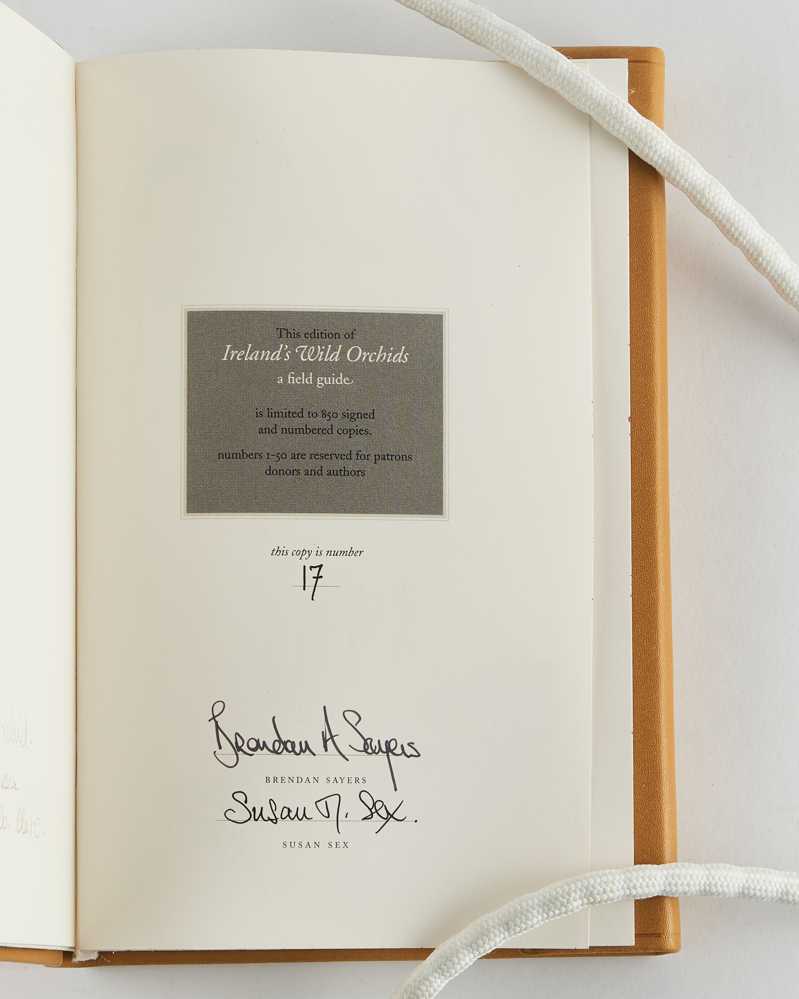 This edition of
Ireland's Wild Orchids
a field guide
is limited to 850 signed
and numbered copies.
numbers 1-50 are reserved for patrons
donors and authors
this copy is number
17
Brendan A Sayers
BRENDAN SAYERS
Susan M. Sex.
SUSAN SEX